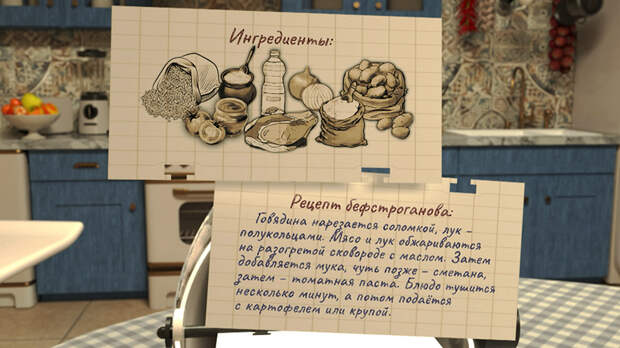 Ингредиенты:
Рецепт бефстроганова:
Говядина нарезается соломкой, лук –
полукольцами. Мясо и лук обжариваются
на разогретой сковороде с маслом. Затем
добавляется мука, чуть позже – сметана,
затем – томатная паста. Блюдо тушится
несколько минут, а потом подаётся
с картофелем или крупой.